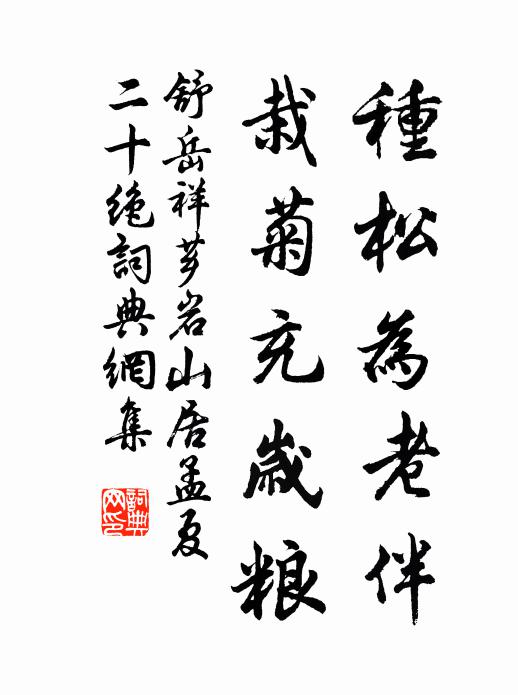 種松為老伴
栽菊充歲粮
舒岳祥芗岩山居孟夏
二十絶詞典網集
詞典网印